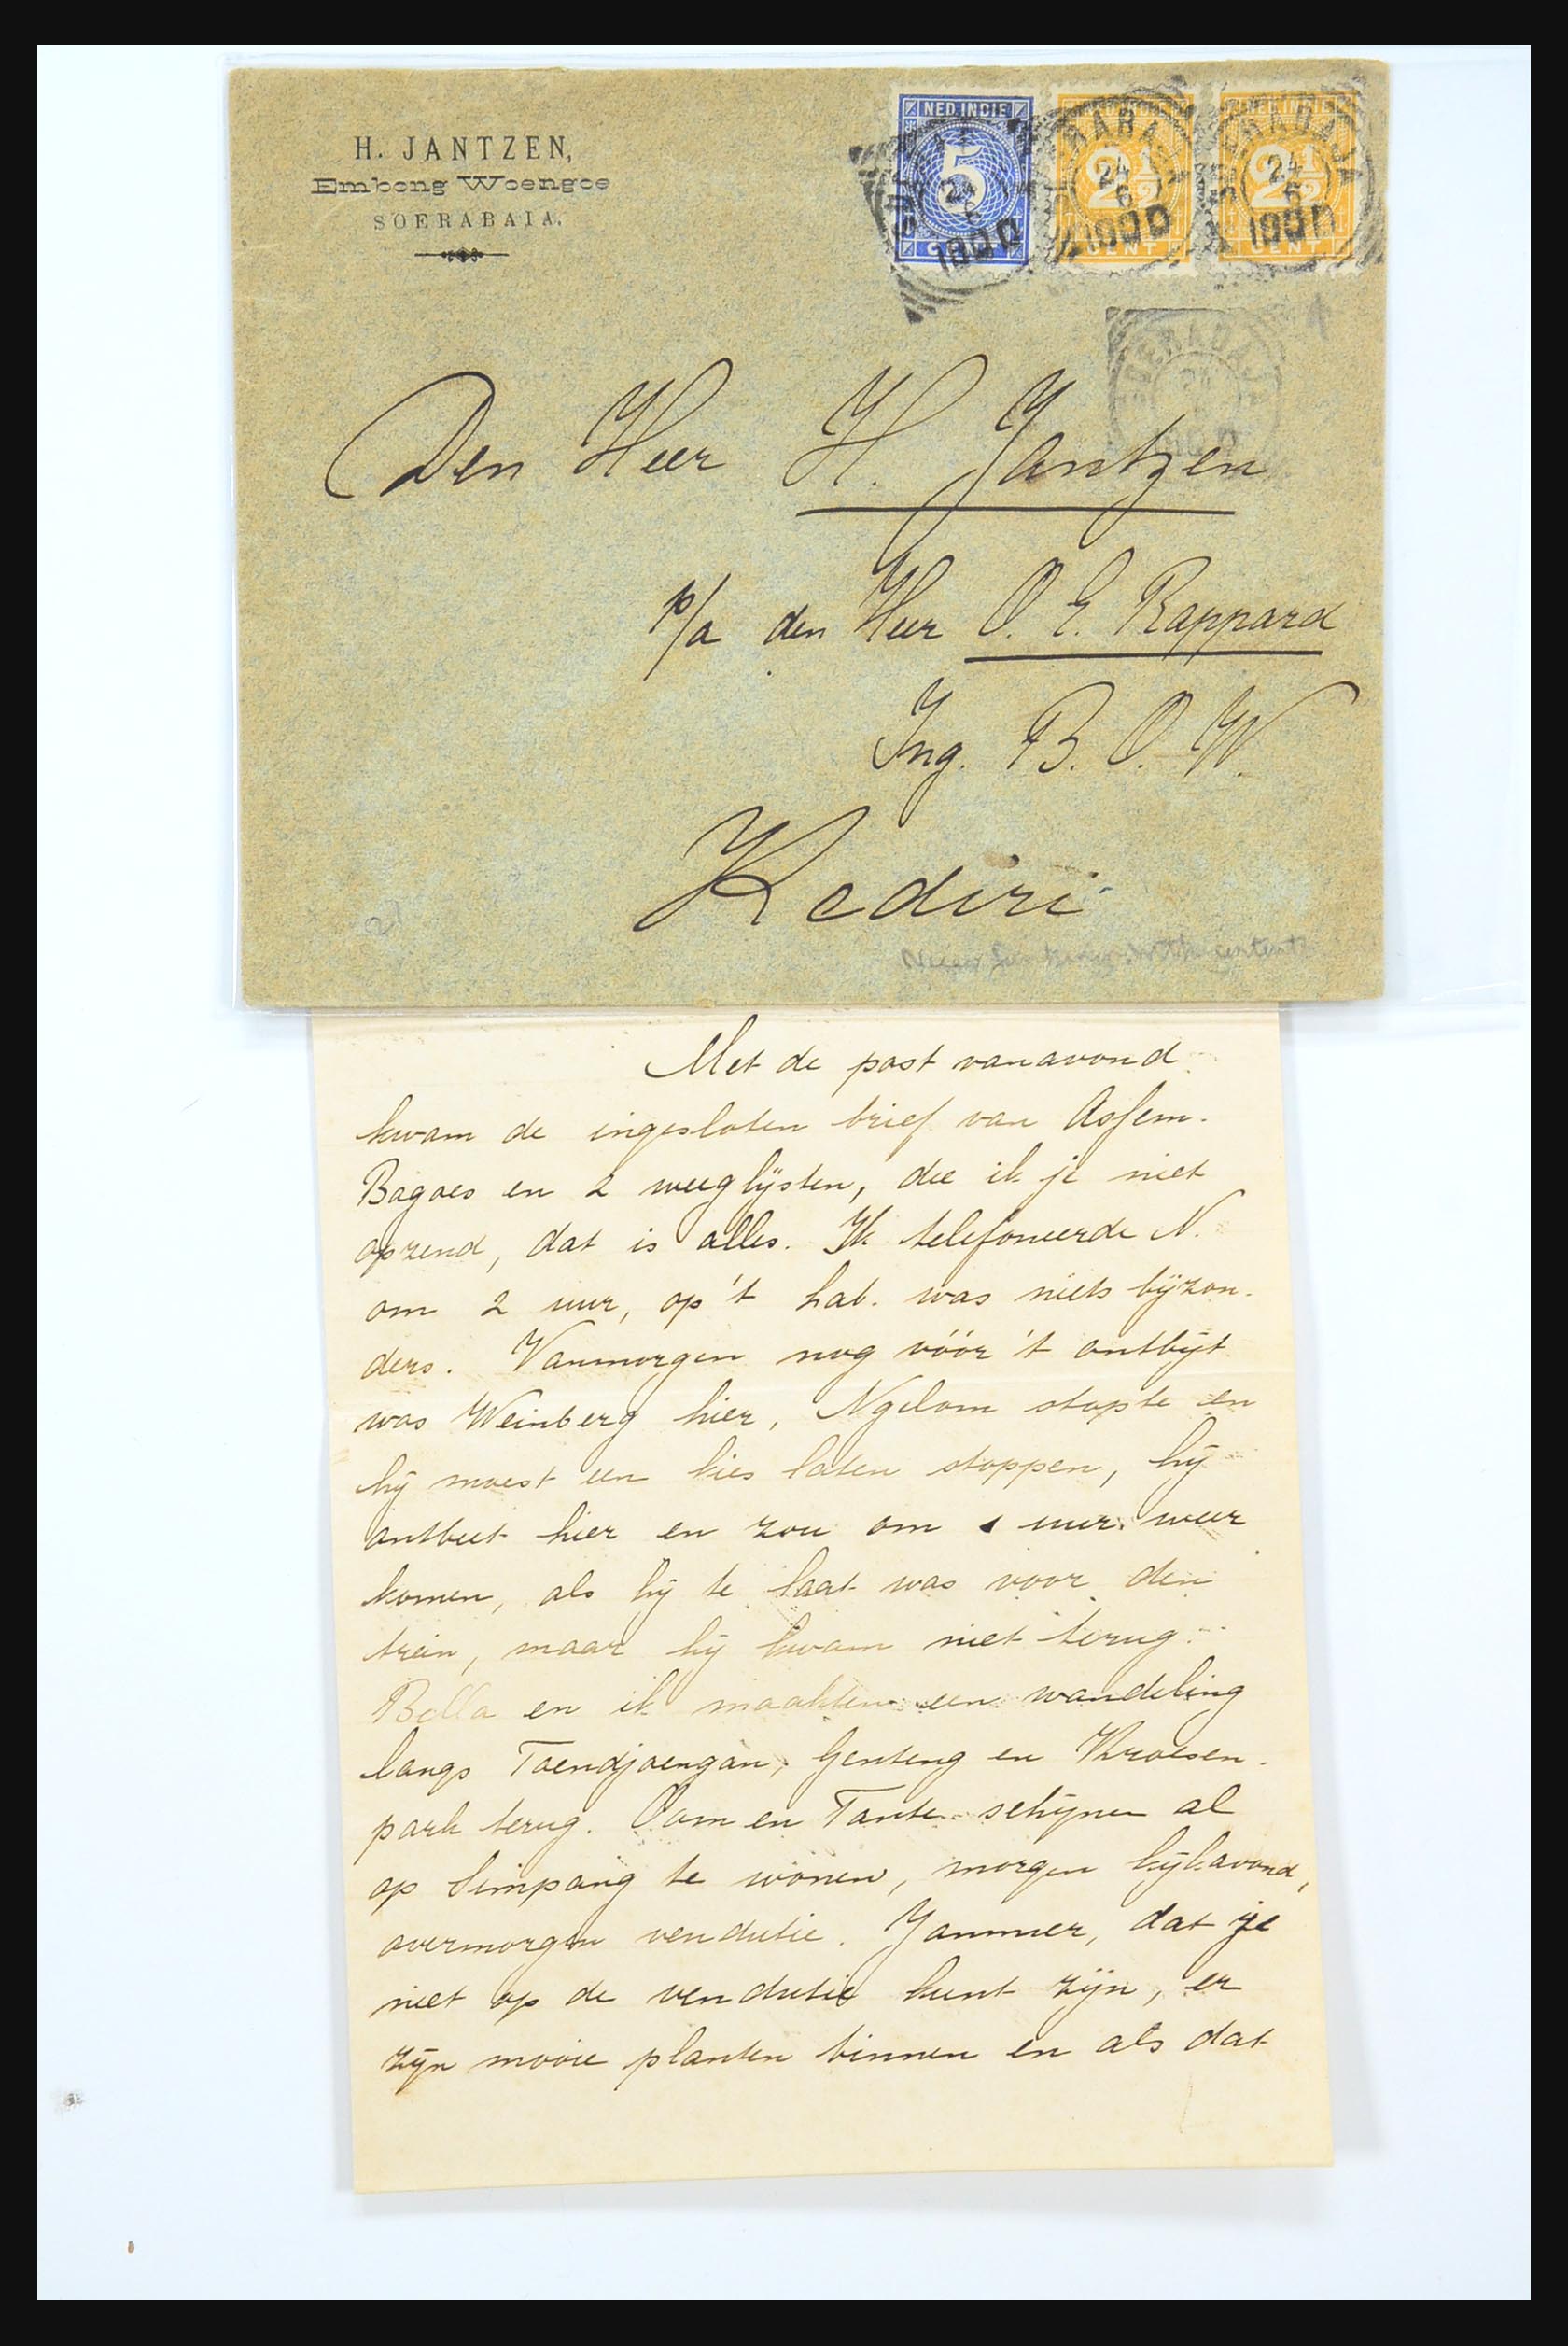 H. JANTZEN,
Embong Woengoe
SOERABAIA.
NED. INDIE
5
CENT
2½
CENT
NED. INDIE
2½
CENT
SOERABAJA
24
6
1900
Den Heer H. Jantzen
p/a den Heer O. E. Rappard
Ing. B. O. W.
Kediri
with content
Met de post vanavond
kwam de ingesloten brief van Assem-
Bagoes en 2 weeglijsten, die ik je niet
opzend, dat is alles. Ik telefoneerde N.
om 2 uur, op 't hab. was niets bijzon-
ders. Vanmorgen nog vóór 't ontbijt
was Weinberg hier, Ngelom stopte en
hij moest een kies laten stoppen, hij
ontbeet hier en zou om 1 uur weer
komen, als hij te laat was voor den
trein, maar hij kwam niet terug.
Bella en ik maakten een wandeling
langs Toendjoengan, Genteng en Kroesen-
park terug. Oom en Tante schijnen al
op Simpang te wonen, morgen kijkavond,
overmorgen vendutie. Jammer, dat je
niet op de vendutie kunt zijn, er
zijn mooie planten binnen en als dat